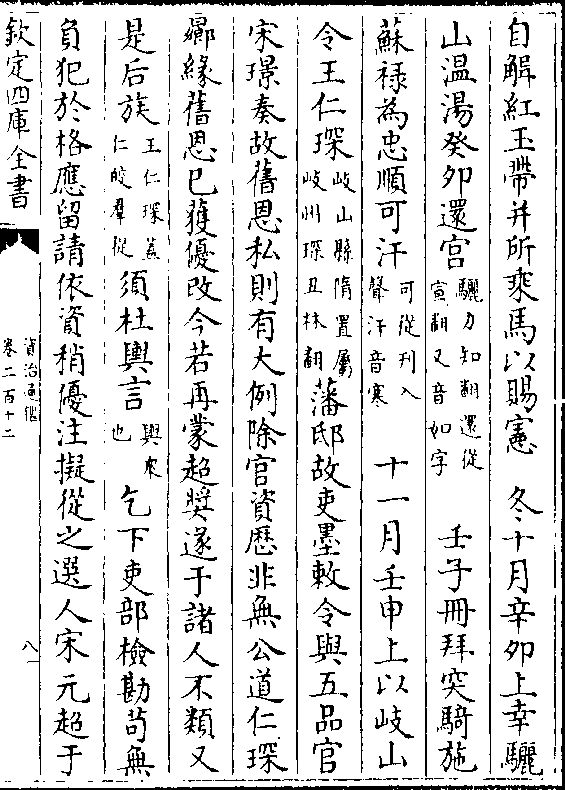 自解紅玉帶并所乘馬以賜憲　冬十月辛卯上幸驪
山温湯癸卯還宮驪力知翻還從宣翻又音如字　壬子冊拜突騎施
蘇禄為忠順可汗可從刋入聲汗音寒　十一月壬申上以岐山
令王仁琛岐山縣隋置屬岐州琛丑林翻藩邸故吏墨敕令與五品官
宋璟奏故舊恩私則有大例除官資歴非無公道仁琛
曏緣舊恩已獲優改今若再蒙超奨遂于諸人不類又
是后族王仁琛葢仁皎羣從須杜輿言輿衆也　乞下吏部檢勘苟無
負犯於格應留請依資稍優注擬從之選人宋元超于
欽定四庫全書
資治通鑑
卷二百十二
八